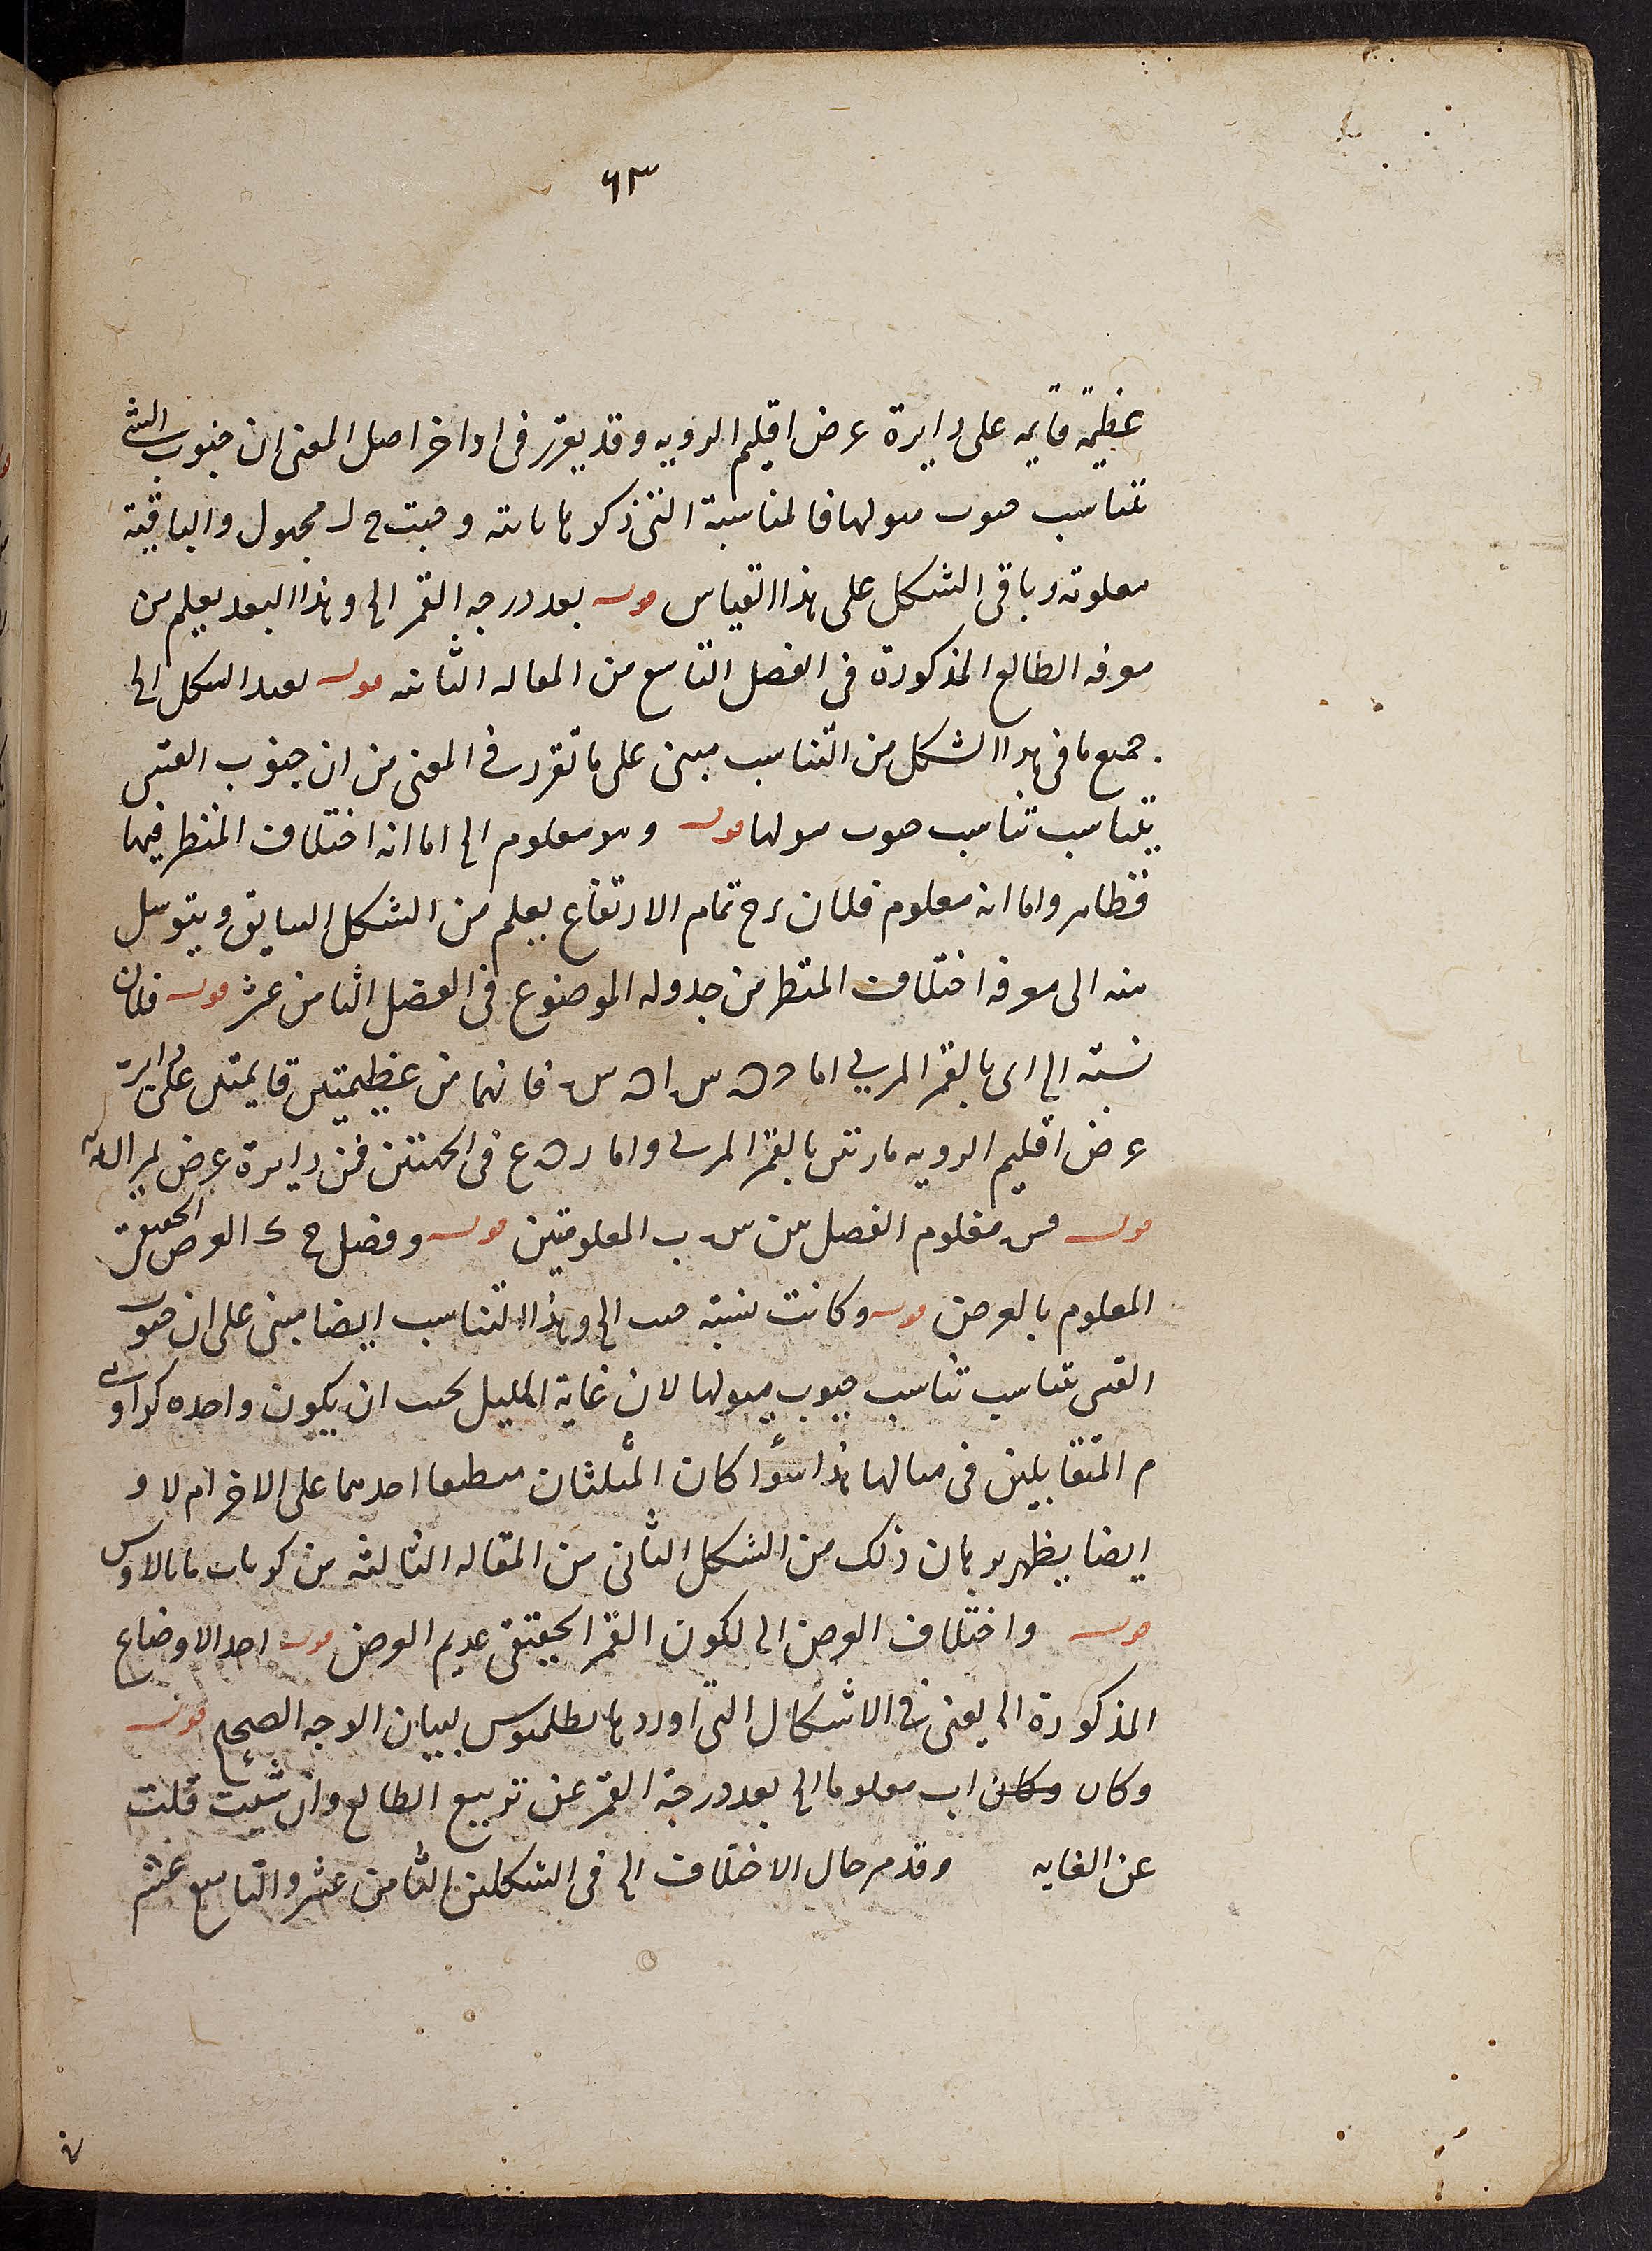 ٦٣
عظيمة قايمه على دايرة عرض اقليم الرويه وقد يقرر فى اواخر اصل المعنى ان جيوب القسى
تتناسب جيوب ميولها فالمناسبة التى ذكرها ثابته وجيب ح ل مجهول والباقية
معلومة وباقى الشكل على هذا القياس قوله بعد درجه القمر الى وهذا البعد يعلم من
معرفه الطالع المذكورة فى الفصل التاسع من المقاله الثانيه قوله لهذا الشكل الى
جميع ما فى هذا الشكل من التناسب مبنى على ما تقرر فى المغنى من ان جيوب القسى
يتناسب تناسب جيوب ميولها قوله وهو معلوم الى اما انه اختلاف المنظر فيها
فظاهر واما انه معلوم فلان رح تمام الارتفاع يعلم من الشكل السابق ويتوسل
منه الى معرفه اختلاف المنظر من جدوله الموضوع فى الفصل الثامن عشر قوله فلان
نسبته الى اى بالقمر المريى اما فانهما من عظيمتين قايمتين على دايرة
عرض اقليم الرويه مارتين بالقمر المريى واما ع فى الجهتين فمن دايرة عرض
قوله معلوم الفصل بين س ب المعلومتين قوله وفضل ح ك العرض الحقيقى
المعلوم بالعرض قوله وكانت نسبة جيب الى وهذا التناسب ايضا مبنى على ان جيوب
القسى تتناسب تناسب جيوب ميولها لان غاية الميل يجب ان يكون واحده كزاويتى
م المتقابلين فى مثالها هذا سواء كان المثلثان منطبقا احدهما على الاخر ام لا و
ايضا يظهر برهان ذلك من الشكل الثانى من المقاله الثالثه من كريات مانالاوس
قوله واختلاف العرض الى لكون القمر الحقيقى عديم العرض قوله احد الاوضاع
المذكورة الى يعنى فى الاشكال التى اوردها بطلميوس لبيان الوجه الصحيح قوله
وكان وكان اب معلوما الى بعد درجة القمر عن تربيع الطالع وان شيئت قلت
عن الغايه وقد مر حال الاختلاف الى فى الشكلين الثامن عشر والتاسع عشر